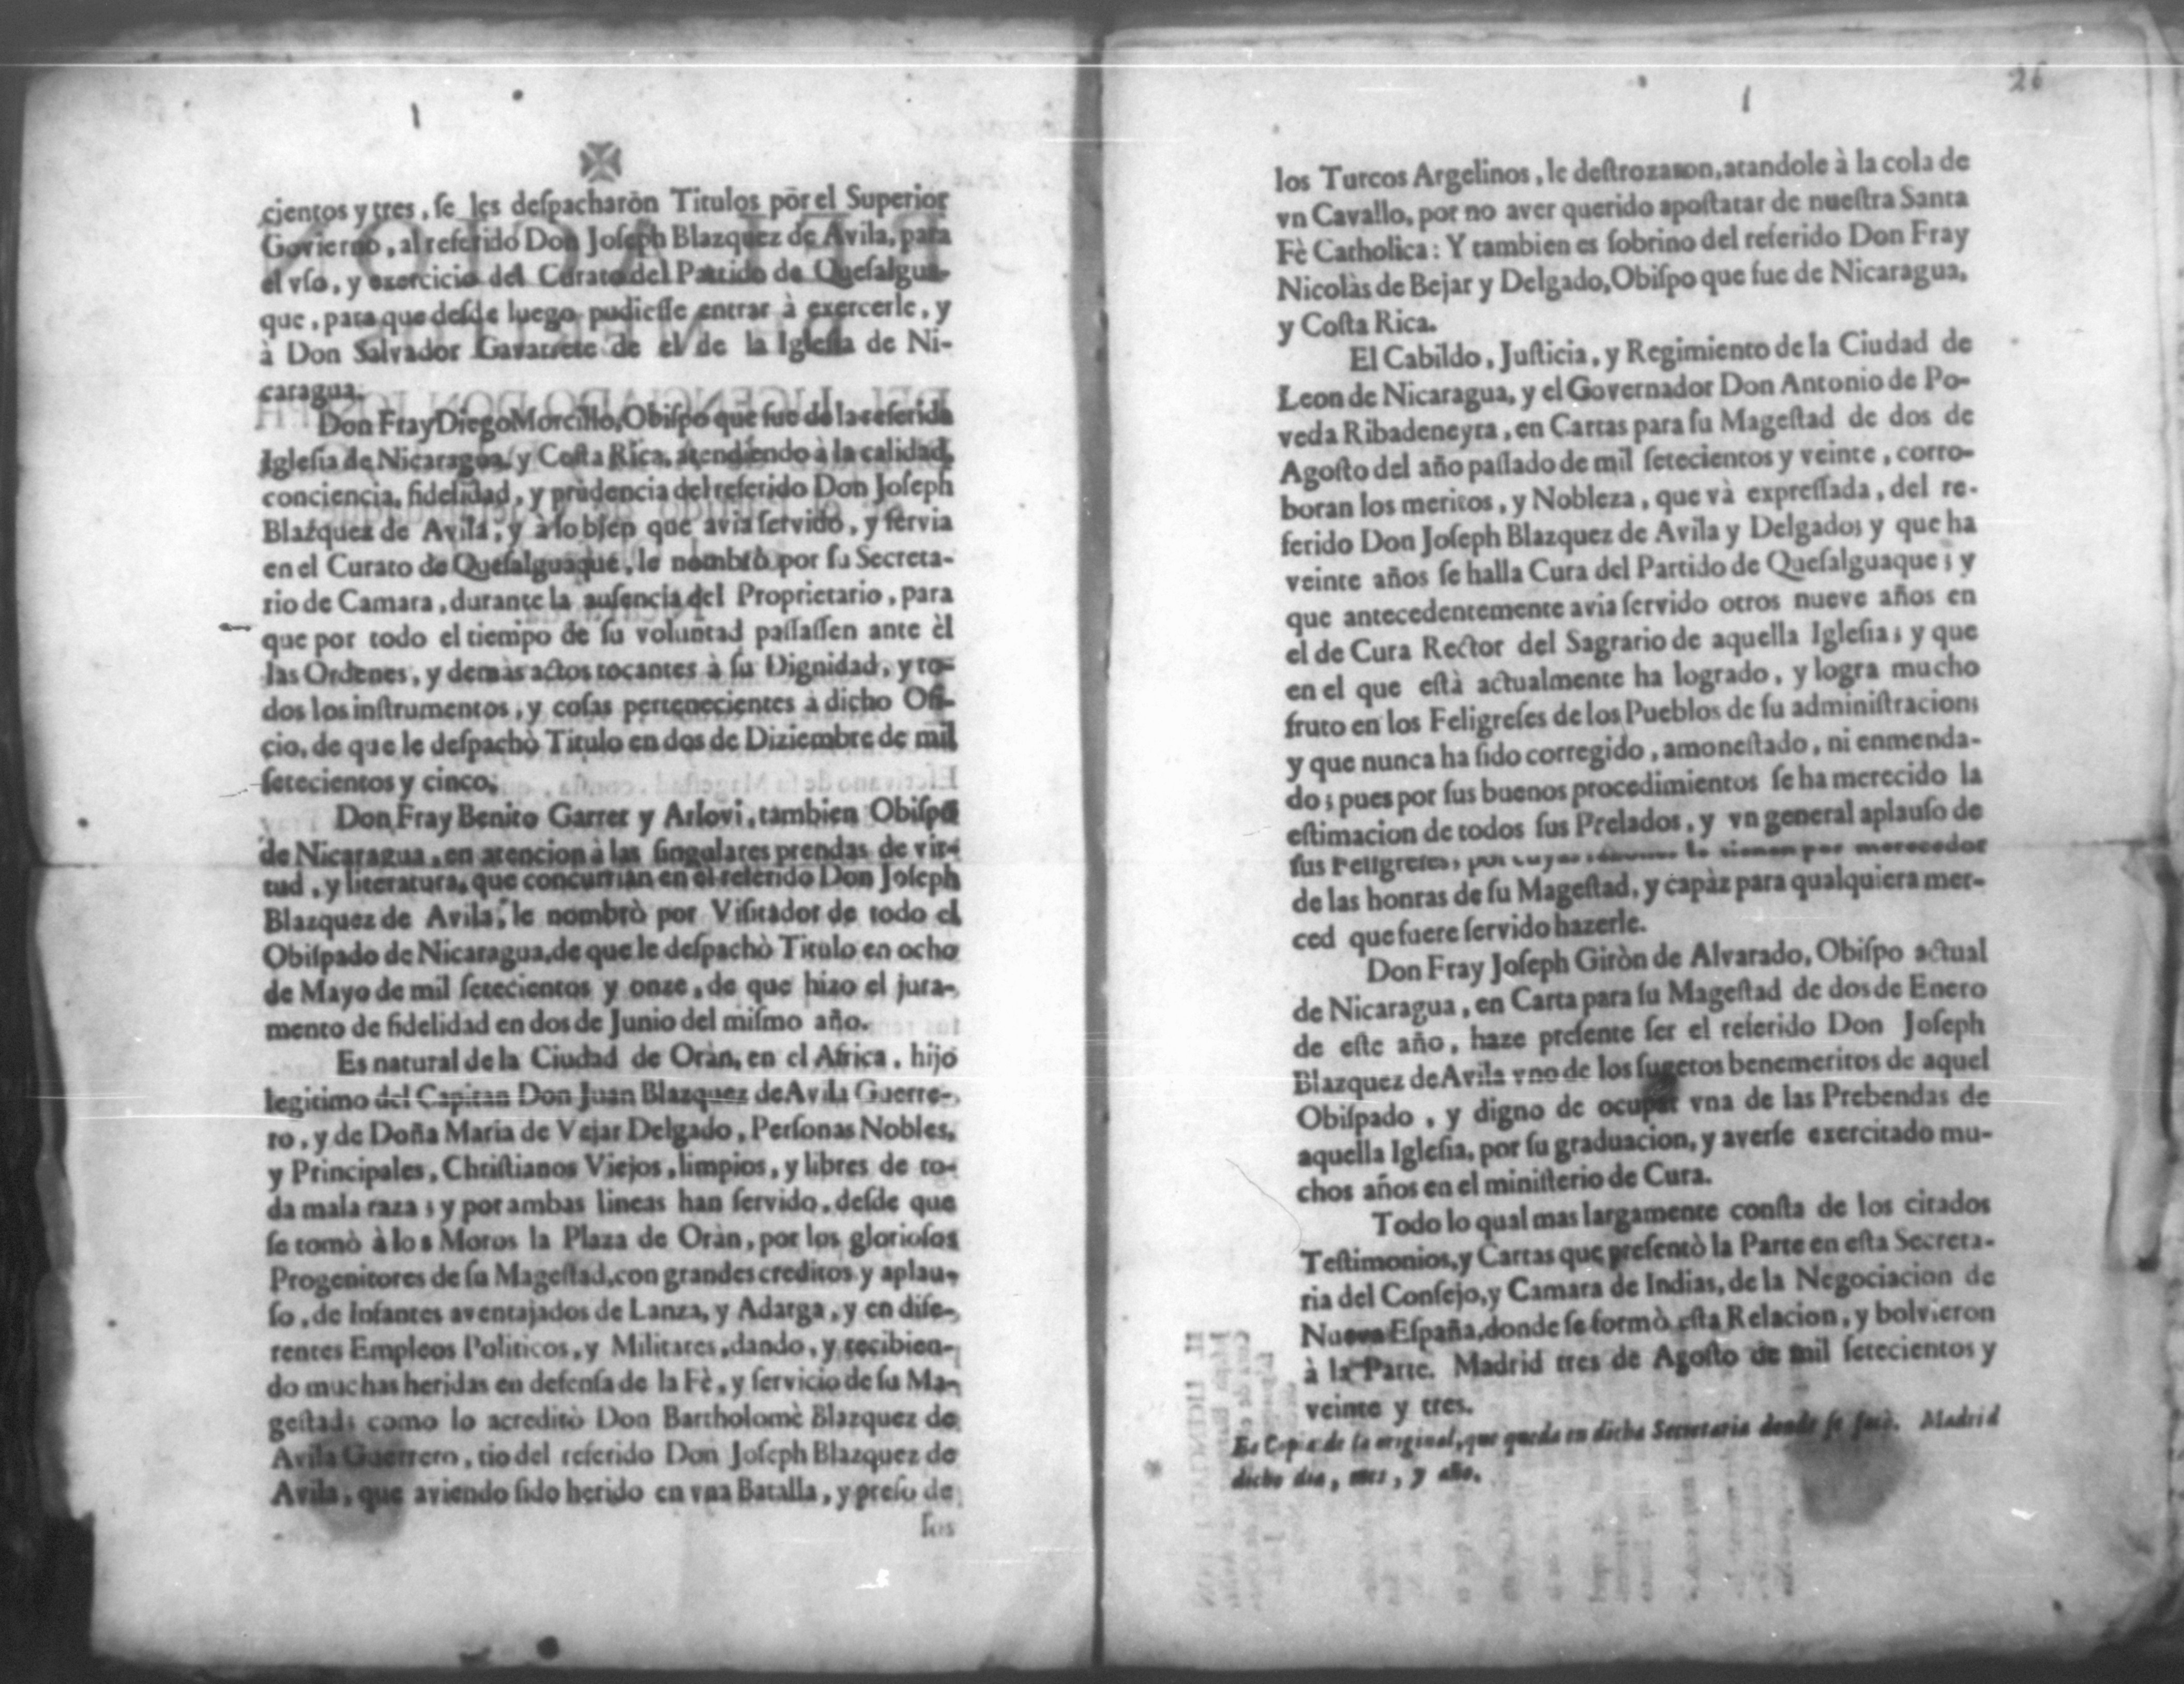 cientos y tres, ſe les deſpacharòn Titulos pòr el Superior
Govierno, al referido Don Joſeph Blazquez de Avila, para
el vſo, y exercicio del Curato del Partido de Queſalgua-
que, para que deſde luego pudieſſe entrar à exercerle, y
à Don Salvador Gavarrete de el de la Igleſia de Ni-
caragua.
Don Fray Diego Morcillo, Obiſpo que fue de la referida
Igleſia de Nicaragua, y Coſta Rica, atendiendo à la calidad,
conciencia, fidelidad, y prudencia del referido Don Joſeph
Blazquez de Avila, y à lo bien que avia ſervido, y ſervia
en el Curato de Queſalguaque, le nombrò por ſu Secreta-
rio de Camara, durante la auſencia del Proprietario, para
que por todo el tiempo de ſu voluntad paſſaſſen ante èl
las Ordenes, y demàs actos tocantes à ſu Dignidad, y to-
dos los inſtrumentos, y coſas pertenecientes à dicho Ofi-
cio, de que le deſpachò Titulo en dos de Diziembre de mil
ſetecientos y cinco.
Don Fray Benito Garret y Arlovi, tambien Obiſpo
de Nicaragua, en atencion à las ſingulares prendas de vir-
tud, y literatura, que concurrian en el referido Don Joſeph
Blazquez de Avila, le nombrò por Viſitador de todo el
Obiſpado de Nicaragua, de que le deſpachò Titulo en ocho
de Mayo de mil ſetecientos y onze, de que hizo el jura-
mento de fidelidad en dos de Junio del miſmo año.
Es natural de la Ciudad de Oràn, en el Africa, hijo
legitimo del Capitan Don Juan Blazquez de Avila Guerre-
ro, y de Doña Maria de Vejar Delgado, Perſonas Nobles,
y Principales, Chriſtianos Viejos, limpios, y libres de to-
da mala raza; y por ambas lineas han ſervido, deſde que
ſe tomò à los Moros la Plaza de Oràn, por los glorioſos
Progenitores de ſu Mageſtad, con grandes creditos y aplau-
ſo, de Infantes aventajados de Lanza, y Adarga, y en dife-
rentes Empleos Politicos, y Militares, dando, y recibien-
do muchas heridas en defenſa de la Fè, y ſervicio de ſu Ma-
geſtad; como lo acreditò Don Bartholomè Blazquez de
Avila Guerrero, tio del referido Don Joſeph Blazquez de
Avila, que aviendo ſido herido en vna Batalla, y preſo de
los
26
los Turcos Argelinos, le deſtrozaron, atandole à la cola de
vn Cavallo, por no aver querido apoſtatar de nueſtra Santa
Fè Catholica: Y tambien es ſobrino del referido Don Fray
Nicolàs de Bejar y Delgado, Obiſpo que fue de Nicaragua,
y Coſta Rica.
El Cabildo, Juſticia, y Regimiento de la Ciudad de
Leon de Nicaragua, y el Governador Don Antonio de Po-
veda Ribadeneyra, en Cartas para ſu Mageſtad de dos de
Agoſto del año paſſado de mil ſetecientos y veinte, corro-
boran los meritos, y Nobleza, que và expreſſada, del re-
ferido Don Joſeph Blazquez de Avila y Delgado; y que ha
veinte años ſe halla Cura del Partido de Queſalguaque; y
que antecedentemente avia ſervido otros nueve años en
el de Cura Rector del Sagrario de aquella Igleſia; y que
en el que eſtà actualmente ha logrado, y logra mucho
fruto en los Feligreſes de los Pueblos de ſu adminiſtracion;
y que nunca ha ſido corregido, amoneſtado, ni enmenda-
do; pues por ſus buenos procedimientos ſe ha merecido la
eſtimacion de todos ſus Prelados, y vn general aplauſo de
ſus Feligreſes, por cuyas razones le tienen por merecedor
de las honras de ſu Mageſtad, y capàz para qualquiera mer-
ced que fuere ſervido hazerle.
Don Fray Joſeph Giròn de Alvarado, Obiſpo actual
de Nicaragua, en Carta para ſu Mageſtad de dos de Enero
de eſte año, haze preſente ſer el referido Don Joſeph
Blazquez de Avila vno de los ſugetos benemeritos de aquel
Obiſpado, y digno de ocupar vna de las Prebendas de
aquella Igleſia, por ſu graduacion, y averſe exercitado mu-
chos años en el miniſterio de Cura.
Todo lo qual mas largamente conſta de los citados
Teſtimonios, y Cartas que preſentò la Parte en eſta Secreta-
ria del Conſejo, y Camara de Indias, de la Negociacion de
Nueva Eſpaña, donde ſe formò eſta Relacion, y bolvieron
à la Parte. Madrid tres de Agoſto de mil ſetecientos y
veinte y tres.
Es Copia de la original, que queda en dicha Secretaria donde ſe ſacò. Madrid
dicho dia, mes, y año.